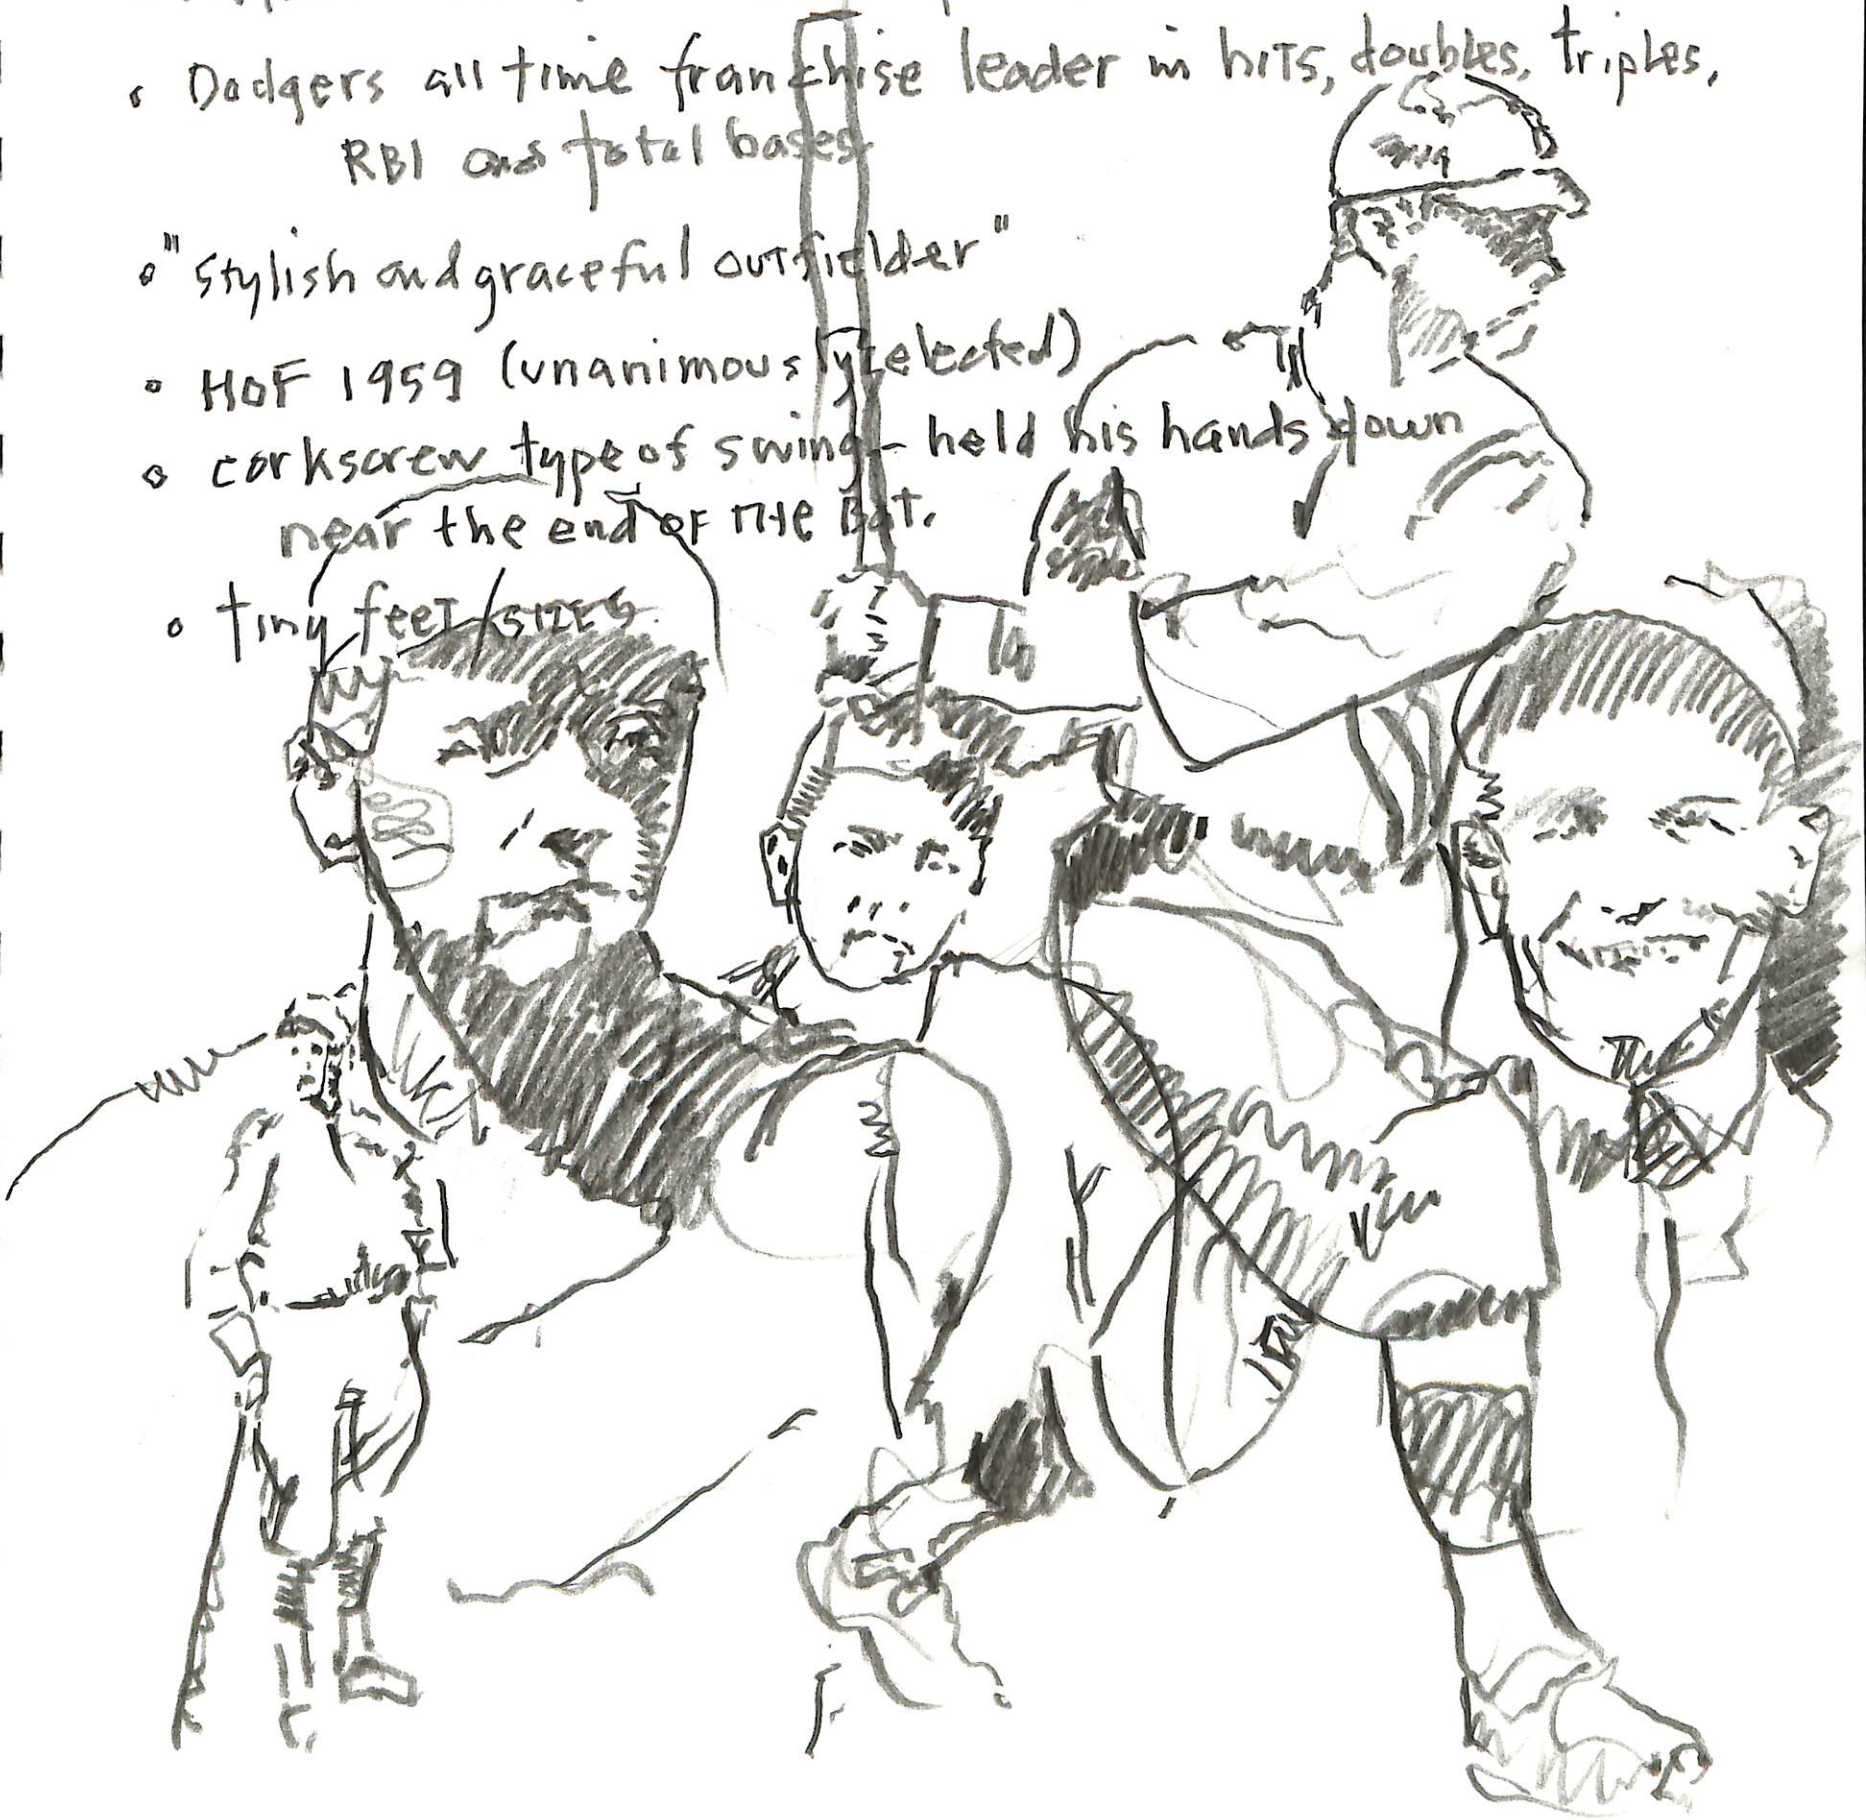 • Dodgers all time franchise leader in hits, doubles, triples,
RBI and total bases
• "stylish and graceful outfielder"
• HOF 1959 (unanimously selected)
• corkscrew type of swing - held his hands down
near the end of the Bat.
• tiny feet/